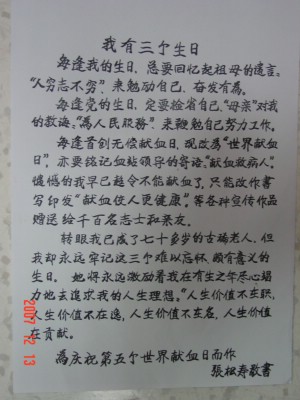 我有三个生日
每逢我的生日，总要回忆起祖母的遗言：
“人穷志不穷”，来勉励自己，奋发有为。
每逢党的生日，定要检省自己，“母亲”对我
的教诲：“为人民服务”，来鞭勉自己努力工作。
每逢首创无偿献血日，现改为“世界献血
日”，亦要铭记血站领导的寄语：“献血救病人”。
遗憾的我早已超令不能献血了，只能改作书
写印发“献血使人更健康”，等各种宣传作品
赠送给千百名志士和亲友。
转眼我已成了七十多岁的古稀老人，但
我却永远牢记这三个难以忘怀、颇有意义的
生日。她将永远激励着我在有生之年尽心竭
力地去追求我的人生理想。“人生价值不在职，
人生价值不在远，人生价值不在名，人生价值
在贡献。
为庆祝第五个世界献血日而作
张祖寿敬书
2007 12 13